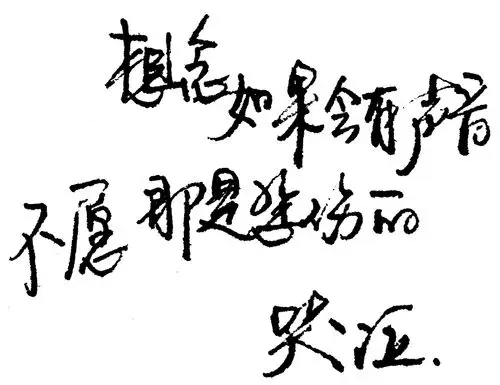 想念如果会有声音
不愿那是悲伤的
哭泣.